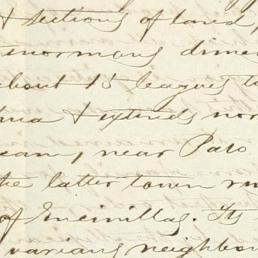 & sections of land
enormous dimen
about 15 leagues t
hua & extends nor
ean, near Palo
the latter town
of Encinillas. Its
various neighbor